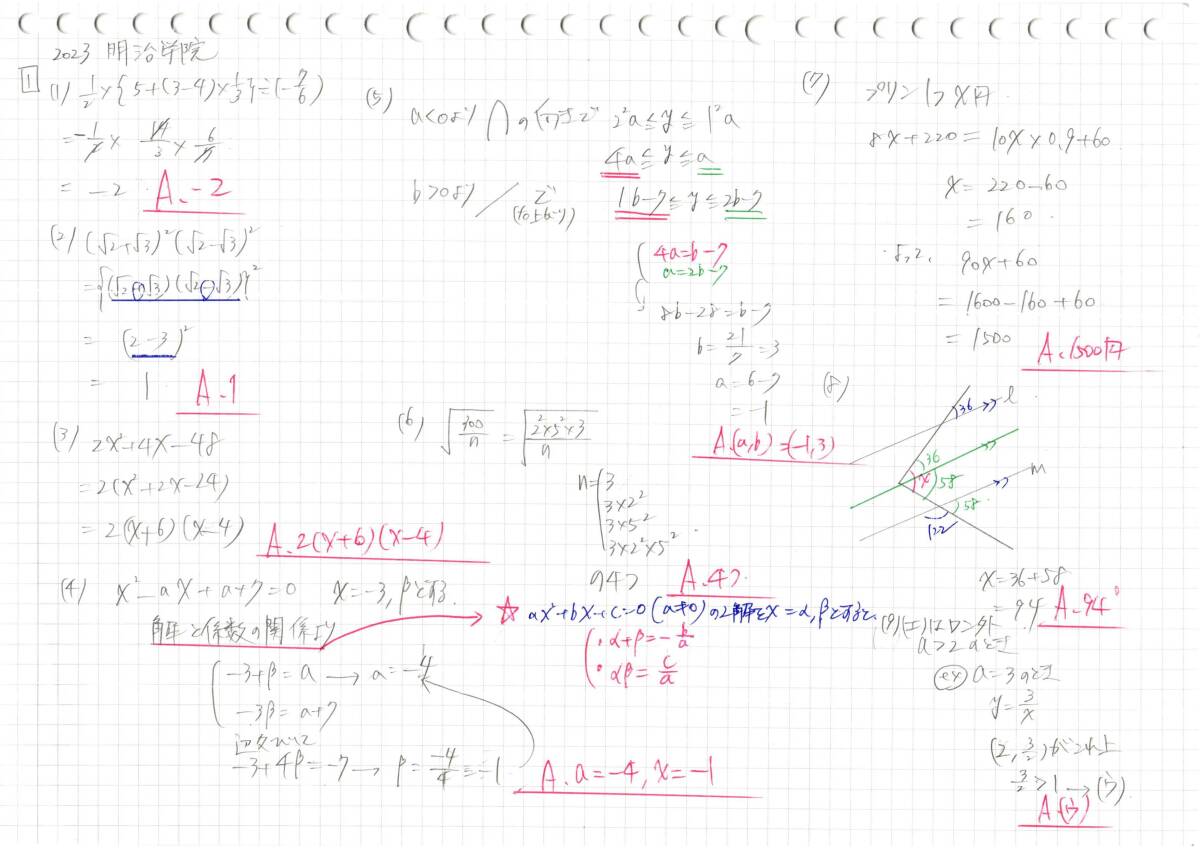 2023 明治学院
1
(1) 1/2 × {5+(3-4)×1/3} ÷ (-7/6)
= -1/2 × 14/3 × 6/7
= -2 A. -2
(2) (√2+√3)²(√2-√3)²
= {(√2+√3)(√2-√3)}²
= (2-3)²
= 1 A. 1
(3) 2x²+4x-48
= 2(x²+2x-24)
= 2(x+6)(x-4)
A. 2(x+6)(x-4)
(4) x²-ax+a+7=0 x=-3, βとする.
解と係数の関係より
☆ ax²+bx+c=0 (a≠0)の2解をx=α,βとすると、
・α+β=-b/a
・αβ=c/a
-3+β=a → a=-4
-3β=a+7
-3+4β=-7 → β=-4/4=-1
A. a=-4, x=-1
(5) a<0より ∩の f で 2²a≦y≦1²a
4a≦y≦a
b>0より / で
1b-7≦y≦2b-7
4a=b-7
a=2b-7
8b-28=b-7
b=21/7=3
a=6-7
=-1
A.(a,b)=(-1,3)
(6) √300/n = √2²×5²×3/n
n= 3
3×2²
3×5²
3×2²×5²
の4つ A. 4つ.
(7) プリン1つx円.
8x+220=10x×0.9+60
x=220-60
=160.
よって、90x+60
=1600-160+60
=1500 A. 1500円
(8)
36 l
36
x 58
m
58
122
x=36+58
=94 A. 94°
(9)(エ)はロンガイ
a>2のとき
ex a=3のとき
y=3/x
(2, 3/2)がこれ上
3/2>1 → (ウ)
A.(ウ)